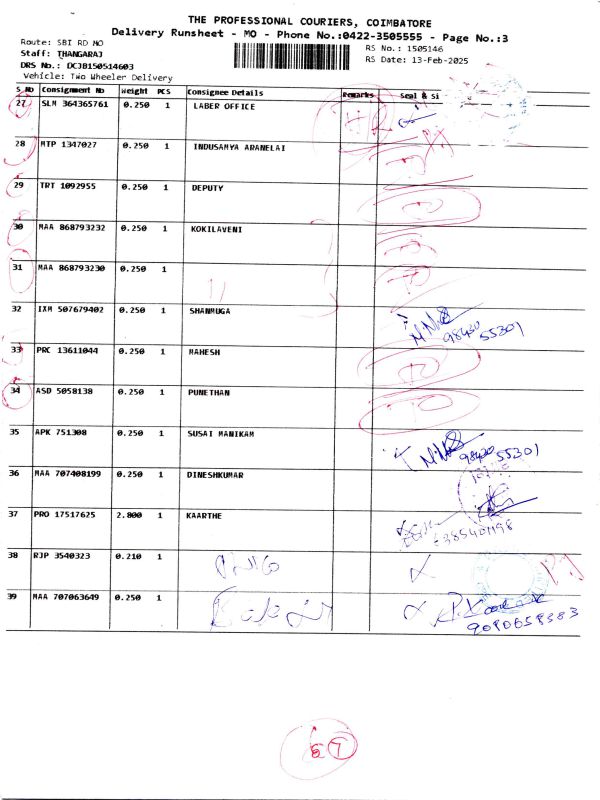 THE PROFESSIONAL COURIERS, COIMBATORE
Delivery Runsheet - MO - Phone No.:0422-3505555 - Page No.:3
Route: SBI RD MO
RS No.: 1505146
Staff: THANGARAJ
RS Date: 13-Feb-2025
DRS No.: DCJB150514603
Vehicle: Two Wheeler Delivery
S No Consignment No Weight PCS Consignee Details Remarks Seal & Si
27 SLM 364365761 0.250 1 LABER OFFICE
28 MTP 1347027 0.250 1 INDUSAMYA ARANELAI
29 TRT 1092955 0.250 1 DEPUTY
30 MAA 868793232 0.250 1 KOKILAVENI
31 MAA 868793230 0.250 1
32 IXM 507679402 0.250 1 SHANMUGA
98430 55301
33 PRC 13611044 0.250 1 MAHESH
34 ASD 5058138 0.250 1 PUNETHAN
35 APK 751308 0.250 1 SUSAI MANIKAM
98430 55301
36 MAA 707408199 0.250 1 DINESHKUMAR
37 PRO 17517625 2.800 1 KAARTHE
38 RJP 3540323 0.210 1
39 MAA 707063649 0.250 1